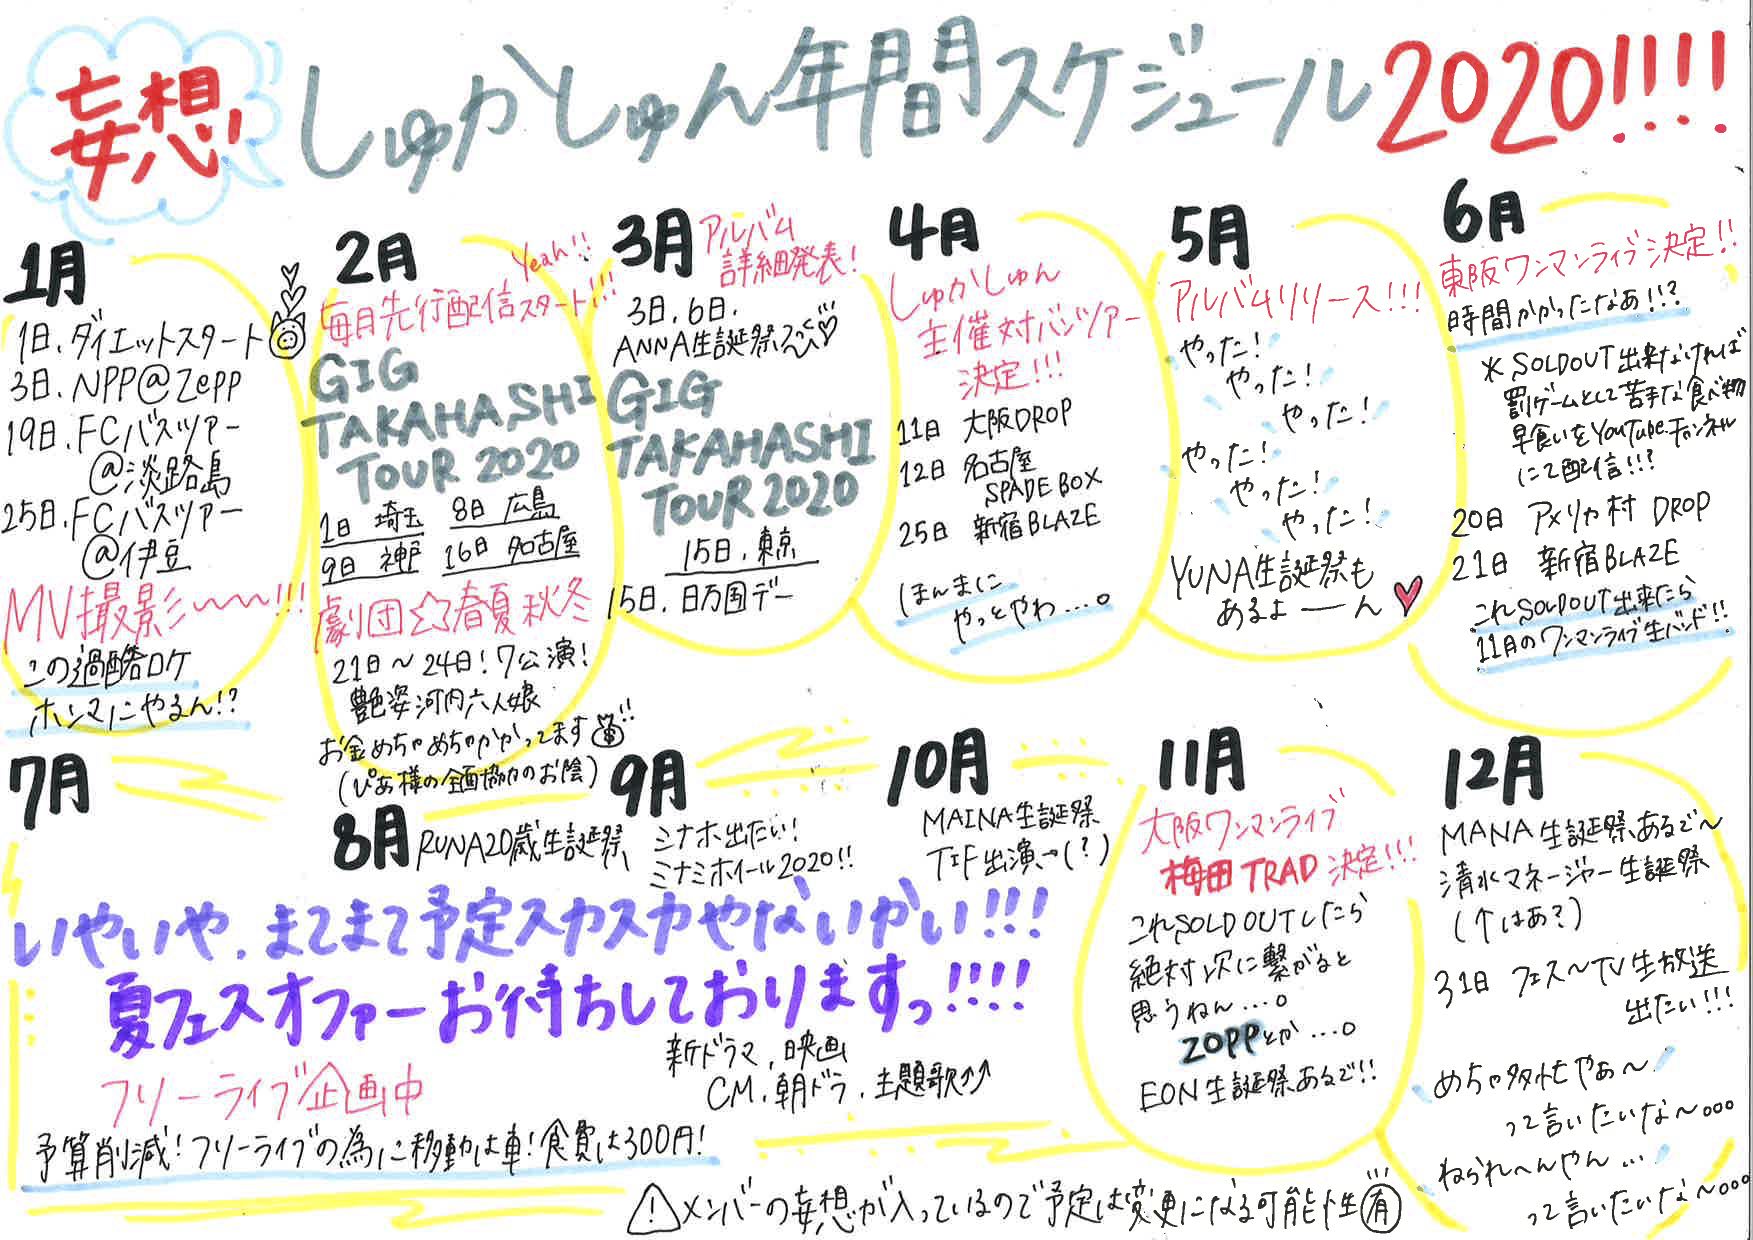 妄想
しゅかしゅん年間スケジュール2020!!!!
1月
1日.ダイエットスタート
3日.NPP@Zepp
19日.FCバスツアー
@淡路島
25日.FCバスツアー
@伊豆
MV撮影〜〜!!!
この過酷ロケ
ホンマにやるん!?
2月
Yeah!!
毎月先行配信スタート!!!
GIG
TAKAHASHI
TOUR 2020
1日 埼玉 8日 広島
9日 神戸 16日 名古屋
劇団☆春夏秋冬
21日〜24日!7公演!
艶姿河内六人娘
お金めちゃめちゃかかってます!!
(ぴあ様の企画協力のお陰)
3月
アルバム
詳細発表!
3日.6日.
ANNA生誕祭
GIG
TAKAHASHI
TOUR 2020
15日.東京
15日.日万国デー
4月
しゅかしゅん
主催対バンツアー
決定!!!
11日 大阪DROP
12日 名古屋
SPADE BOX
25日 新宿BLAZE
ほんまに
やっとやわ...。
5月
アルバムリリース!!!
やった!
やった!
やった!
やった!
やった!
やった!
YUNA生誕祭も
あるよーーん
6月
東阪ワンマンライブ決定!!
時間かかったなあ!!?
※SOLDOUT出来なければ
罰ゲームとして苦手な食べ物
早食いをYouTubeチャンネル
にて配信!!?
20日 アメリカ村 DROP
21日 新宿BLAZE
これSOLDOUT出来たら
11月のワンマンライブ生バンド!!
7月
8月
RUNA20歳生誕祭
9月
ミナホ出たい!
ミナミホイール2020!!
10月
MAINA生誕祭
TIF出演→(?)
いやいや、まてまて予定スカスカやないかい!!!
夏フェスオファーお待ちしておりますっ!!!!
フリーライブ企画中
新ドラマ.映画
CM.朝ドラ.主題歌↑↑
予算削減!フリーライブの為に移動は車!食費は300円!
11月
大阪ワンマンライブ
梅田TRAD 決定!!!
これSOLD OUTしたら
絶対次に繋がると
思うねん...。
ZOPPとか...。
EON生誕祭あるで!!
12月
MANA生誕祭あるで〜
清水マネージャー生誕祭
(↑はあ?)
31日 フェス〜TV生放送
出たい!!!
めちゃ多忙やぁ〜!
って言いたいな〜。。。
ねられへんやん...!
って言いたいな〜。。。
⚠メンバーの妄想が入っているので予定は変更になる可能性㊒